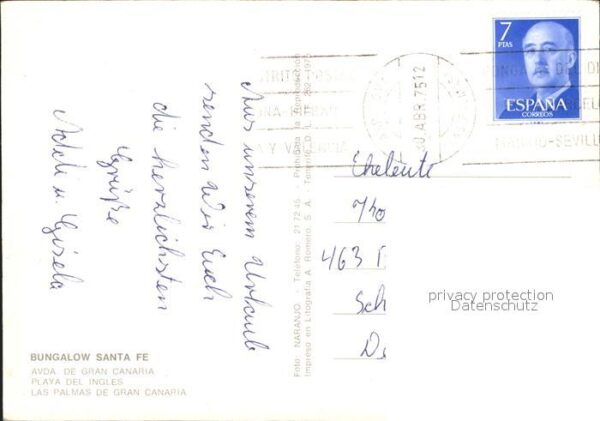 Aus unserem Urlaub
senden Wir Euch
die herzlichsten
Grüße
Addi u. Gisela
BUNGALOW SANTA FE
AVDA. DE GRAN CANARIA
PLAYA DEL INGLES
LAS PALMAS DE GRAN CANARIA
Foto NARANJO - Teléfono: 21 72 45 - Prohibida la Reproducción
Impreso en Litografía A. Romero, S. A.
7
PTAS
ESPAÑA
CORREOS
ABR. 75 12
Eheleute
463
Sch
privacy protection
Datenschutz